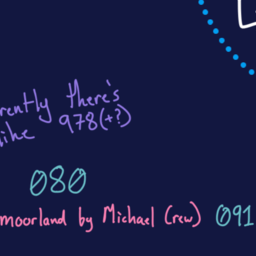 rently there's
like 978(+?)
080
moorland by Michael (rew) 091